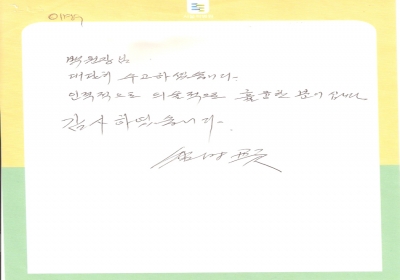 백 원장님
대단히 수고하셨습니다.
인격적으로 의술적으로 훌륭한 분이십니다
감사하였습니다.